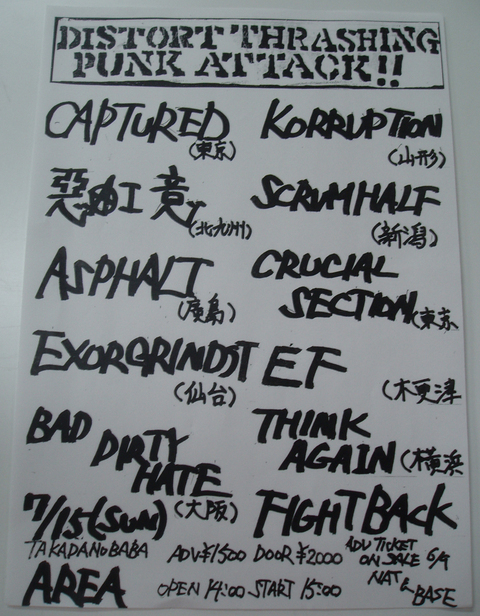 DISTORT THRASHING
PUNK ATTACK!!
CAPTURED
(東京)
KORRUPTION
(山形)
(北九州)
SCRUMHALF
(新潟)
ASPHALT
(廣島)
CRUCIAL
SECTION
(東京
EXORGRINDST
(仙台)
EF
(木更津
BAD
DIRTY
HATE
(大阪)
THINK
AGAIN
(横浜
7/15(SUN)
FIGHT BACK
TAKADANOBABA
AREA
ADV ¥1500 DOOR ¥2000
OPEN 14:00 START 15:00
ADV TICKET
ON SALE 6/9
NAT &
BASE